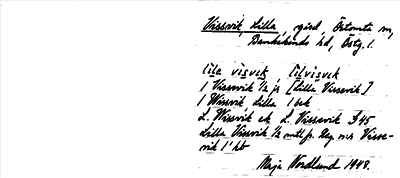 Vissvik, Lilla, gård Östomta sn,
Bankekinds hd, Östg. l.
lila visvik, lilvisvik
1 Vissvik ½ js [Lilla Vissevik]
1 Wissvik Lilla 1 bek
L. Wissvik ek L. Vissevik J45
Lilla Vissvik ½ mtl fr. Reg m.m. Visse-
vik 1' ht
Maja Nordlund 1948.